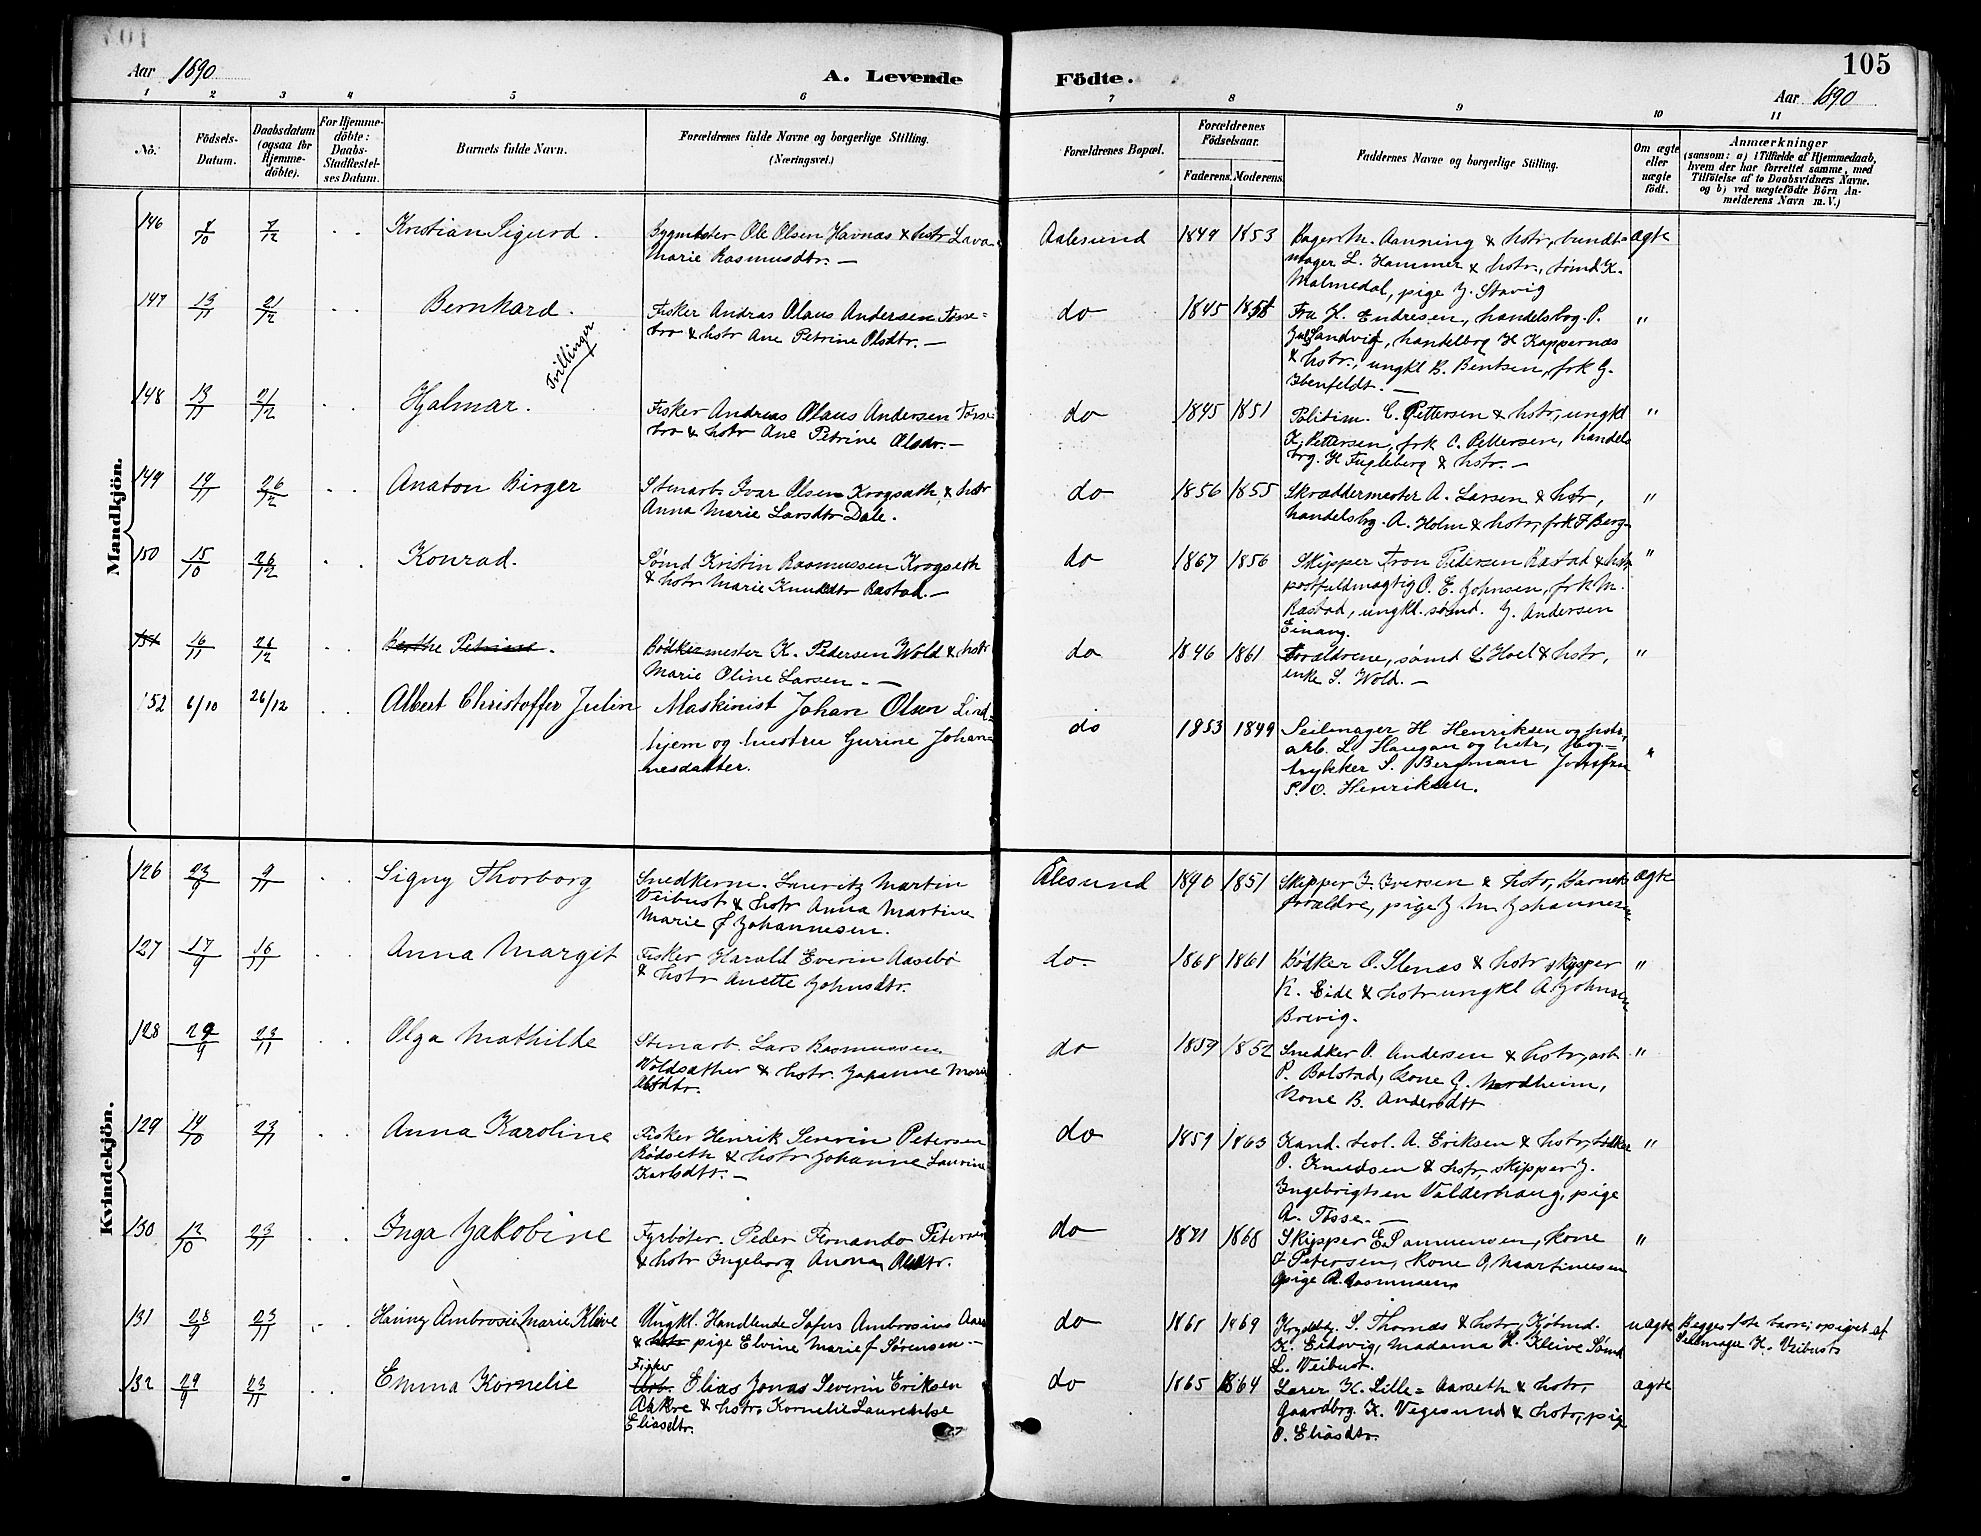 Aar 1890
A. Levende Födte.
105
Aar 1890
1 2 3 4 5 6 7 8 9 10 11
No.
Födsels-Datum.
Daabsdatum (ogsaa for Hjemme-döbte).
For Hjemme-döbte: Daabs-Stadfæstel-ses Datum.
Barnets fulde Navn.
Forældrenes fulde Navne og borgerlige Stilling.
(Næringsvei.)
Forældrenes Bopæl.
Forældrenes Födselsaar.
Faderens. Moderens.
Faddernes Navne og borgerlige Stilling.
Om ægte eller uægte födt.
Anmærkninger
(saasom: a) i Tilfælde af Hjemmedaab,
hvem der har forrettet samme, med
Tilföielse af to Daabsvidners Navne.
og b) ved uægtefödte Börn An-
melderens Navn m. V.)
Mandkjön.
146 7/12 Kristian Sigurd.
Ole Olsen Havnæs & hstr Lava
Marie Rasmusdtr. —
Aalesund 1849 1853
Aanning & hstr, bundt-
mager L. Hammer & hstr., sømd K.
Malmedal, pige J. Stavig
ægte
147 13/11 21/12 Bernhard.
Tvillinger
Fisker Andras Olaus Andersen Tøsse-
bro & hstr Ane Petrine Olsdtr. —
do 1845
Fru H. Endresen, handelsbog. P.
Sandvig, handelbog H Kappernæs
& hstr., ungkl B. Bentsen, frk J.
Ibenfeldt. —
"
148 13/11 21/12 Hjalmar.
Fisker Andreas Olaus Andersen Tøsse-
bro & hstr Ane Petrine Olsdtr. —
do 1845 1851
Politim. C. Pettersen & hstr, ungkl
K. Pettersen, frk C. Pettersen, handels
brg. H Fugleberg & hstr. —
"
149 19/11 26/12 Anaton Birger
Stenarb. Ivar Olsen Krogsæth & hstr
Anna Marie Larsdtr Dale.
do 1856 1855
Skræddermester A. Larsen & hstr,
handelsbg. A. Holm & hstr, frk F Berg
"
150 15/10 26/12 Konrad.
Sømd Kristin Rasmussen Krogseth
& hstr Marie Knudsdtr Rastad. —
do 1867 1856
Skipper Tron Pedersen Rastad & hstr
postfuldmægtig O. E. Johnsen, frk M.
Rastad, ungkl. sømd. J. Andersen
Einang.
"
151 16/11 26/12 Berthe Petrine.
Bødkermester K. Pedersen Wold & hstr
Marie Oline Larsen. —
do 1846 1861
Forældrene, sømd L Hoel & hstr,
enke S. Wold. —
"
152 6/10 26/12 Albert Christoffer Julin
Maskinist Johan Olsen Lind-
hjem og hustru Gurine Johan-
nesdatter.
do 1853 1849
Seilmager H Henriksen og hstr,
arb. L. Haugan og hstr, Bog-
trykker S. Bergman Jomfru
P. O. Henriksen.
"
Kvindekjön.
126 23/9 9/11 Signy Thorborg
Snedkerm. Lauritz Martin
Veibust & hstr Anna Martine
Marie f Johannesen.
Ålesund 1851
Skipper J. Iversen & hstr, Barnets
forældre, pige J. M. Johannesen
ægte
127 17/9 16/11 Anna Margit
Fisker Harald Everin Aasebø
& hstr Anette Johnsdtr.
do. 1868 1861
Bødker O. Stenæs & hstr, skipper
K. Eide & hstr ungkl A Johnsen
Brevig.
"
128 29/9 23/11 Olga Mathilde
Stenarb. Lars Rasmussen
Woldsæther & hstr. Marie
Olsdtr.
do 1852
Snedker O. Andersen & hstr, arb
P. Bolstad, kone J. Nordheim,
kone B. Andersdtr
"
129 14/10 23/11 Anna Karoline
Fisker Henrik Severin Petersen
Rødseth & hstr Johanne Laurine
Karlsdtr. —
do 1859 1863
Kand. teol. A. Eriksen & hstr,
P. Knudsen & hstr, skipper J.
Ingebrigtsen Valderhaug, pige
A. Tosse. —
"
130 12/10 23/11 Inga Jakobine
Fyrbøter. Peder Fernando Petersen
& hstr Ingeborg Anna Olsdtr.
do 1871 1868
Skipper E. kone
J Petersen, kone O, Martinusen
pige R. Rasmussen
"
131 28/9 23/11 Hanny Ambrosie Marie Kleive
Ungkl. Handlende Sofus Ambrosius Aas
& hstr pige Elvine Marie f Sørensen —
do 1869
S. Thomæs & hstr, Kjøbmd.
K. Eidsvig, Madama H. Kleive Sømd
L. Veibust.
uægte
Begges 1ste barn; opgivet af
Seilmager K. Veibust
132 29/9 23/11 Emma Kornelie
Fisker
Arb. Elias Jonas Severin Eriksen
Aakre & hstr, Kornelie Laurentse
Eliasdtr.
do 1865 1864
Lærer K. Lille-Aarseth & hstr,
Gaardbrg. K. Vegesund & hstr, pige
O. Eliasdtr.
ægte